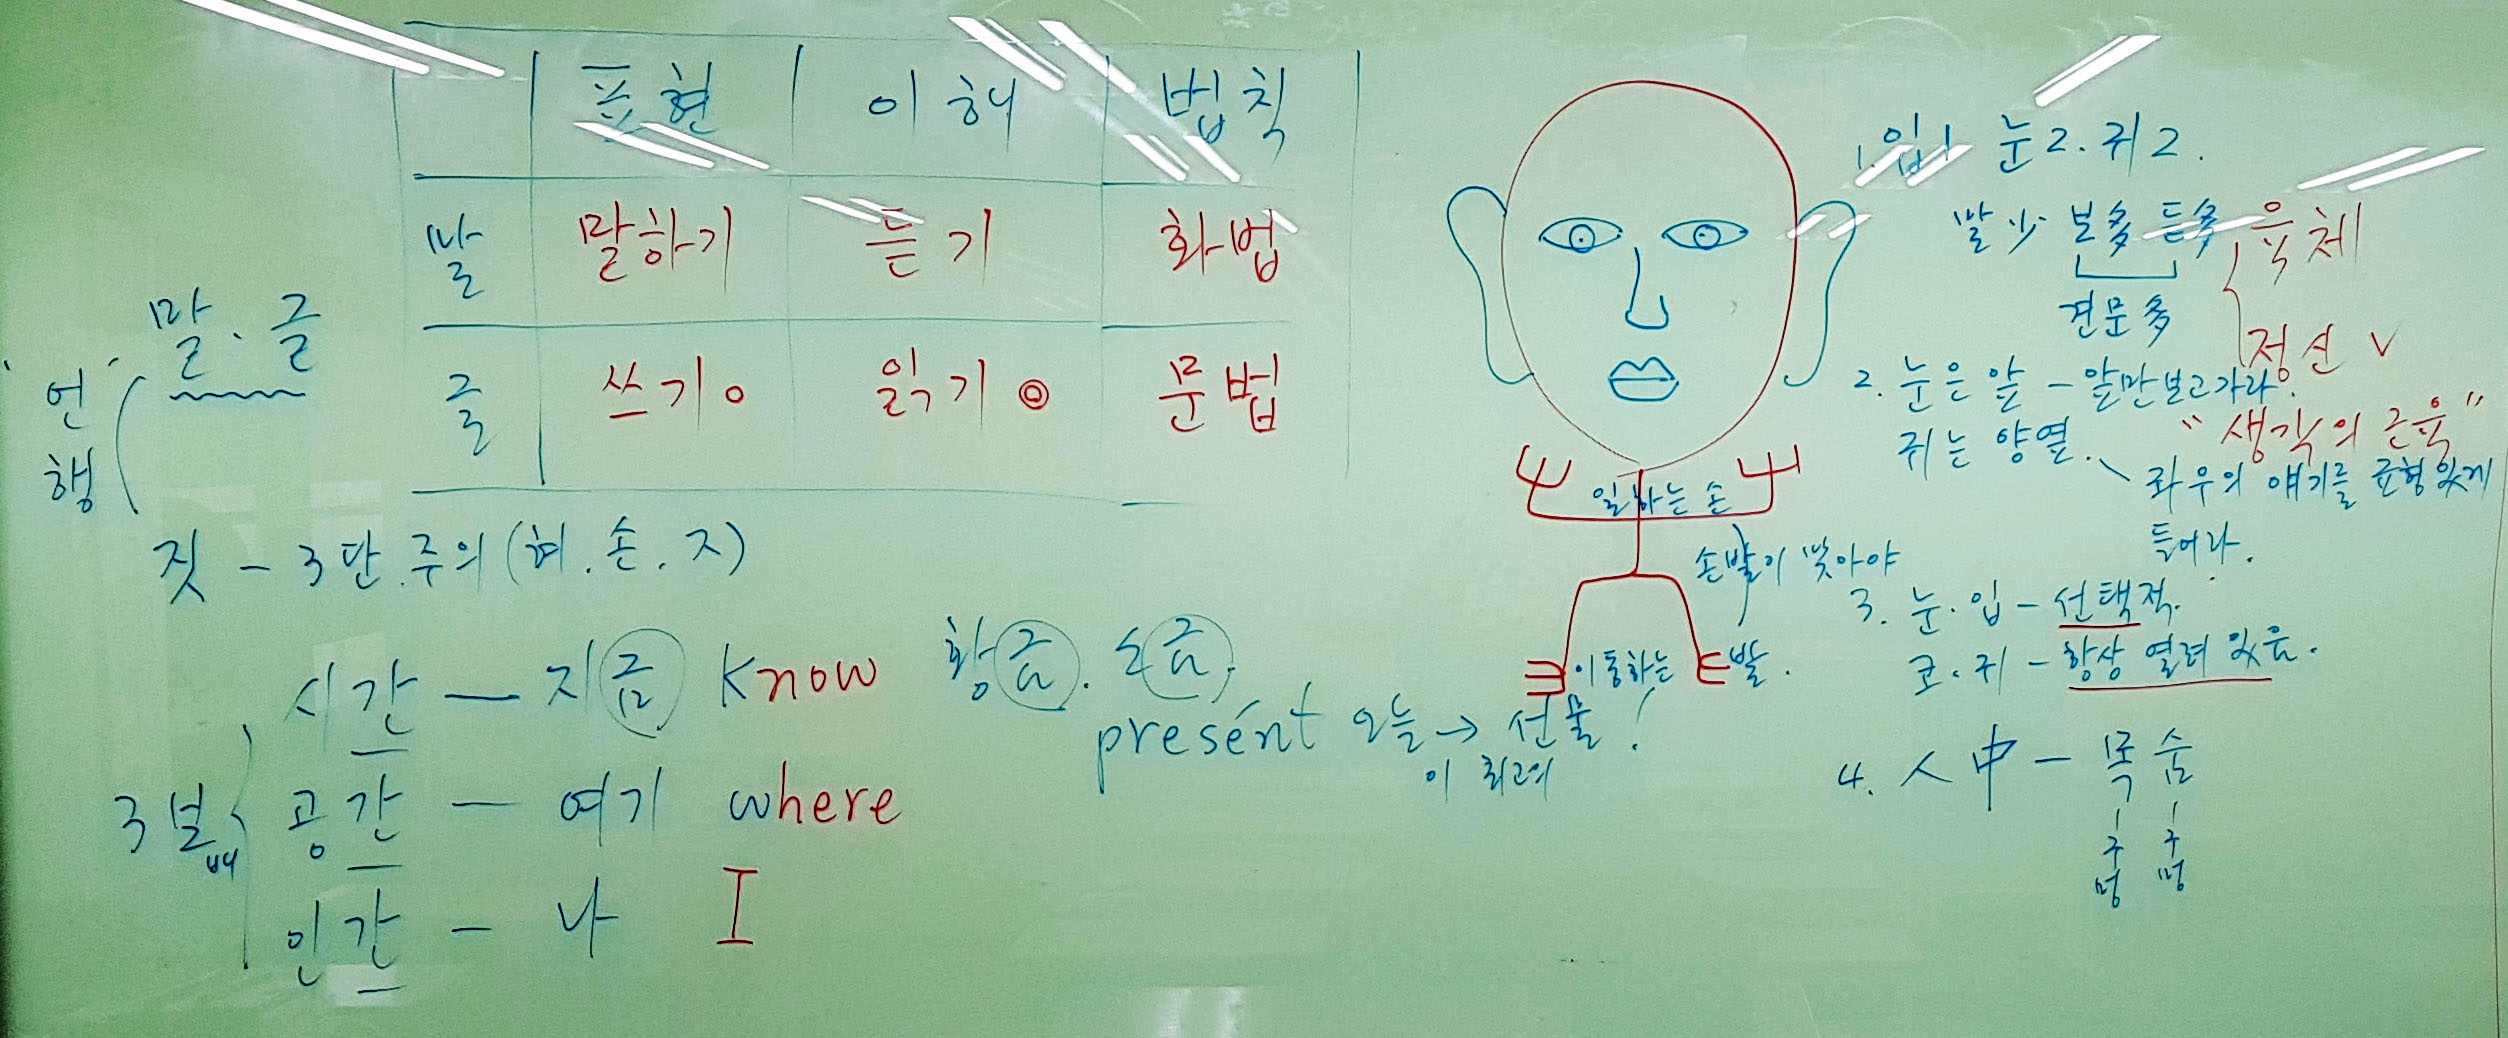 표현 이해 법칙
말 말하기 듣기 화법
글 쓰기 읽기 문법
말·글
언
행
짓 - 3단.주의(혀.손.지)
3보배
시간 - 지금 Know 황금. 소금.
present 오늘 → 선물!
이 최고의
공간 - 여기 where
인간 - 나 I
일하는 손
손발이 맞아야
이동하는 발.
1. 입1 눈2. 귀2.
말少 보多 듣多
견문多
육체
정신 ∨
"생각의 근육"
2. 눈은 앞 - 앞만보고가라.
귀는 양옆.
좌우의 얘기를 균형있게
들어라.
3. 눈·입 - 선택적.
코·귀 - 항상 열려 있음.
4. 人中 - 목숨
구멍 구멍